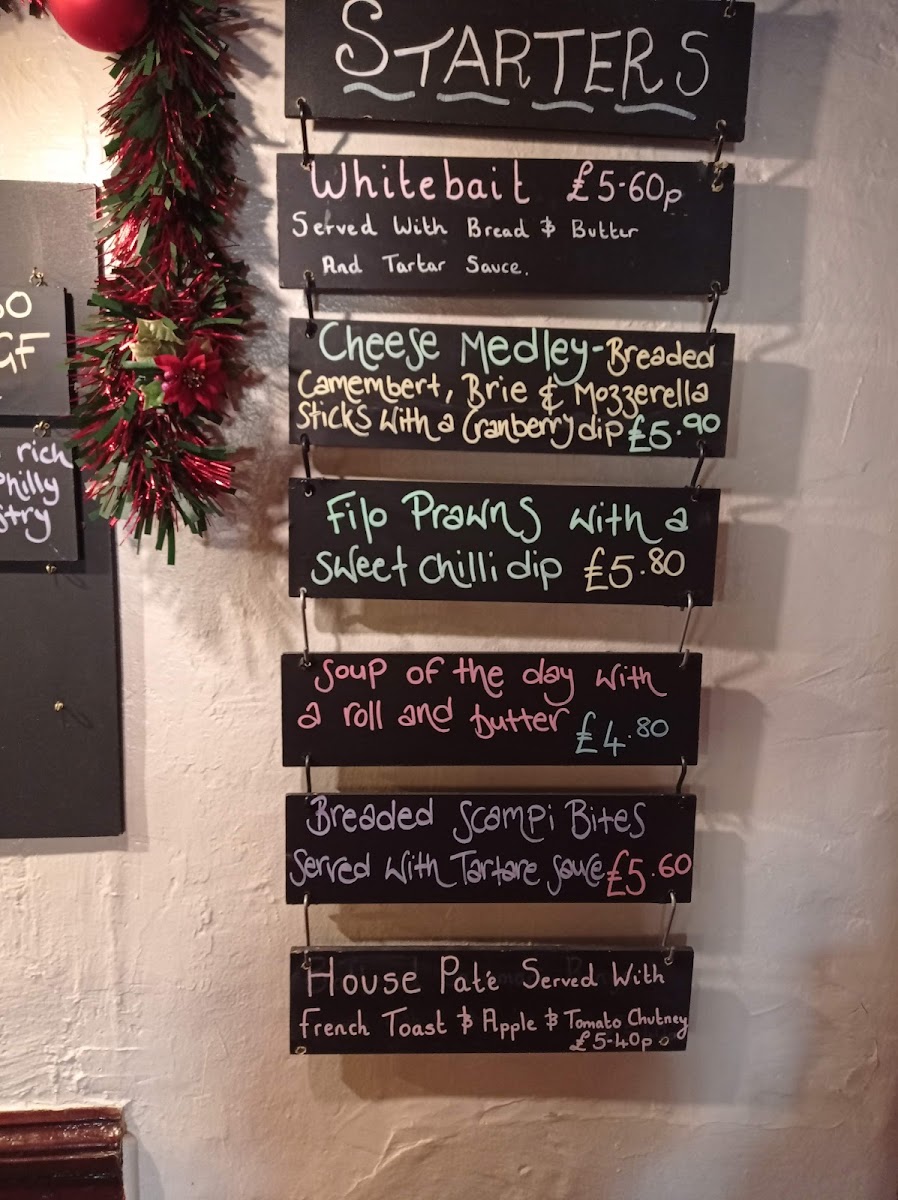 STARTERS
Whitebait £5-60p
Served With Bread & Butter
And Tartar Sauce.
Cheese Medley-Breaded
Camembert, Brie & Mozzerella
Sticks with a Cranberry dip £5.90
Filo Prawns with a
sweet chilli dip £5.80
Soup of the day with
a roll and butter £4.80
Breaded Scampi Bites
Served With Tartare Sauce £5.60
House Pate Served With
French Toast & Apple & Tomato Chutney
£5-40p
GF
rich
Philly